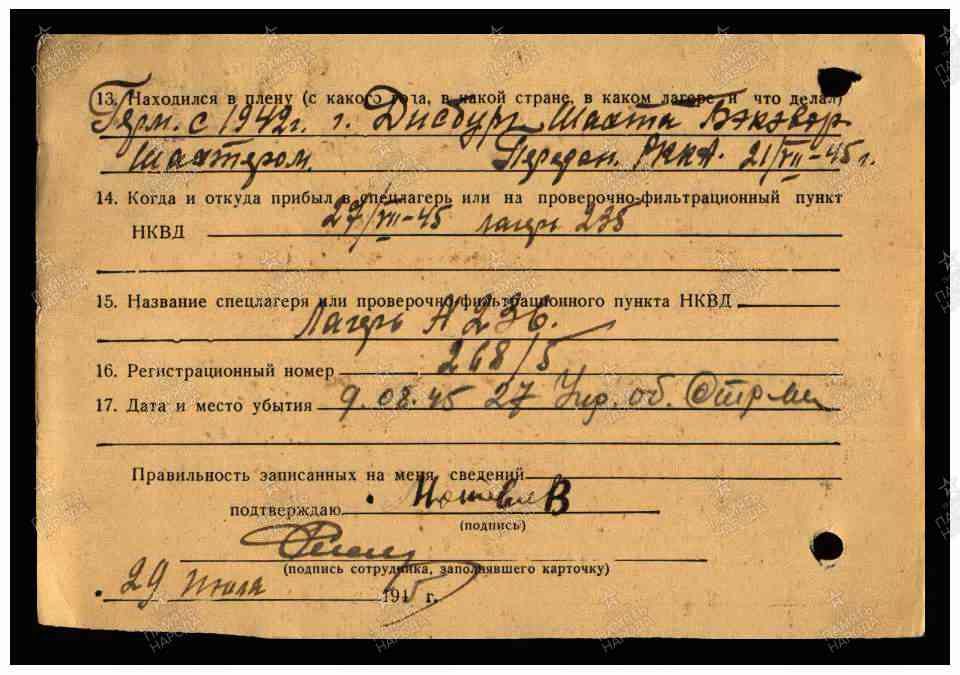 13. Находился в плену (с какого года, в какой стране, в каком лагере и что делал)
Герм. с 1942г. г. Дисбург Шахта Бэкэвер
Шахтером. Передан. РККА. 21/VII-45 г.
14. Когда и откуда прибыл в спецлагерь или на проверочно-фильтрационный пункт
27/VII-45 лагерь 235
НКВД
15. Название спецлагеря или проверочно-фильтрационного пункта НКВД
Лагерь № 236.
16. Регистрационный номер 268/5
17. Дата и место убытия 9.08.45 27 об.
Правильность записанных на меня сведений
подтверждаю
(подпись)
(подпись сотрудника, заполнявшего карточку)
29 Июля 1945 г.
ПАМЯТЬ НАРОДА